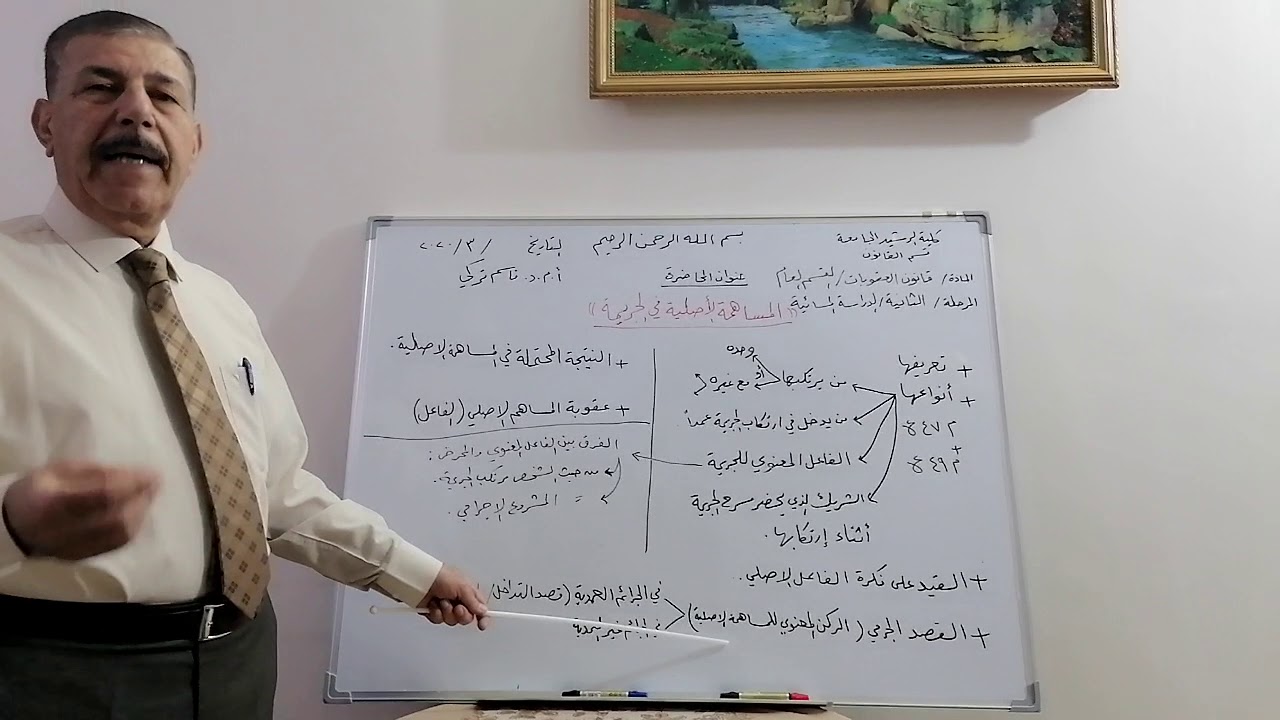 كلية الرشيد الجامعة
قسم القانون
بسم الله الرحمن الرحيم
التاريخ / ٣ / ٢٠٢٠
المادة / قانون العقوبات / القسم العام
عنوان المحاضرة
أ.م.د. قاسم تركي
المرحلة / الثانية / الدراسة المسائية
(( المساهمة الأصلية في الجريمة ))
+ تعريفها
+ أنواعها
م ٤٧ ع
+
م ٤٩ ع
من يرتكبها
وحده
مع غيره
من يدخل في ارتكاب الجريمة عمداً
الفاعل المعنوي للجريمة
الشريك الذي يحضر مسرح الجريمة
أثناء إرتكابها.
+ النتيجة المحتملة في المساهمة الاصلية.
+ عقوبة المساهم الاصلي (الفاعل)
الفرق بين الفاعل المعنوي والمحرض :
من حيث الشخص مرتكب الجريمة.
= المشروع الإجرامي.
+ القصد الجرمي ( الركن المعنوي للمساهمة الاصلية)
في الجرائم العمدية (قصد التداخل)
غير العمدية